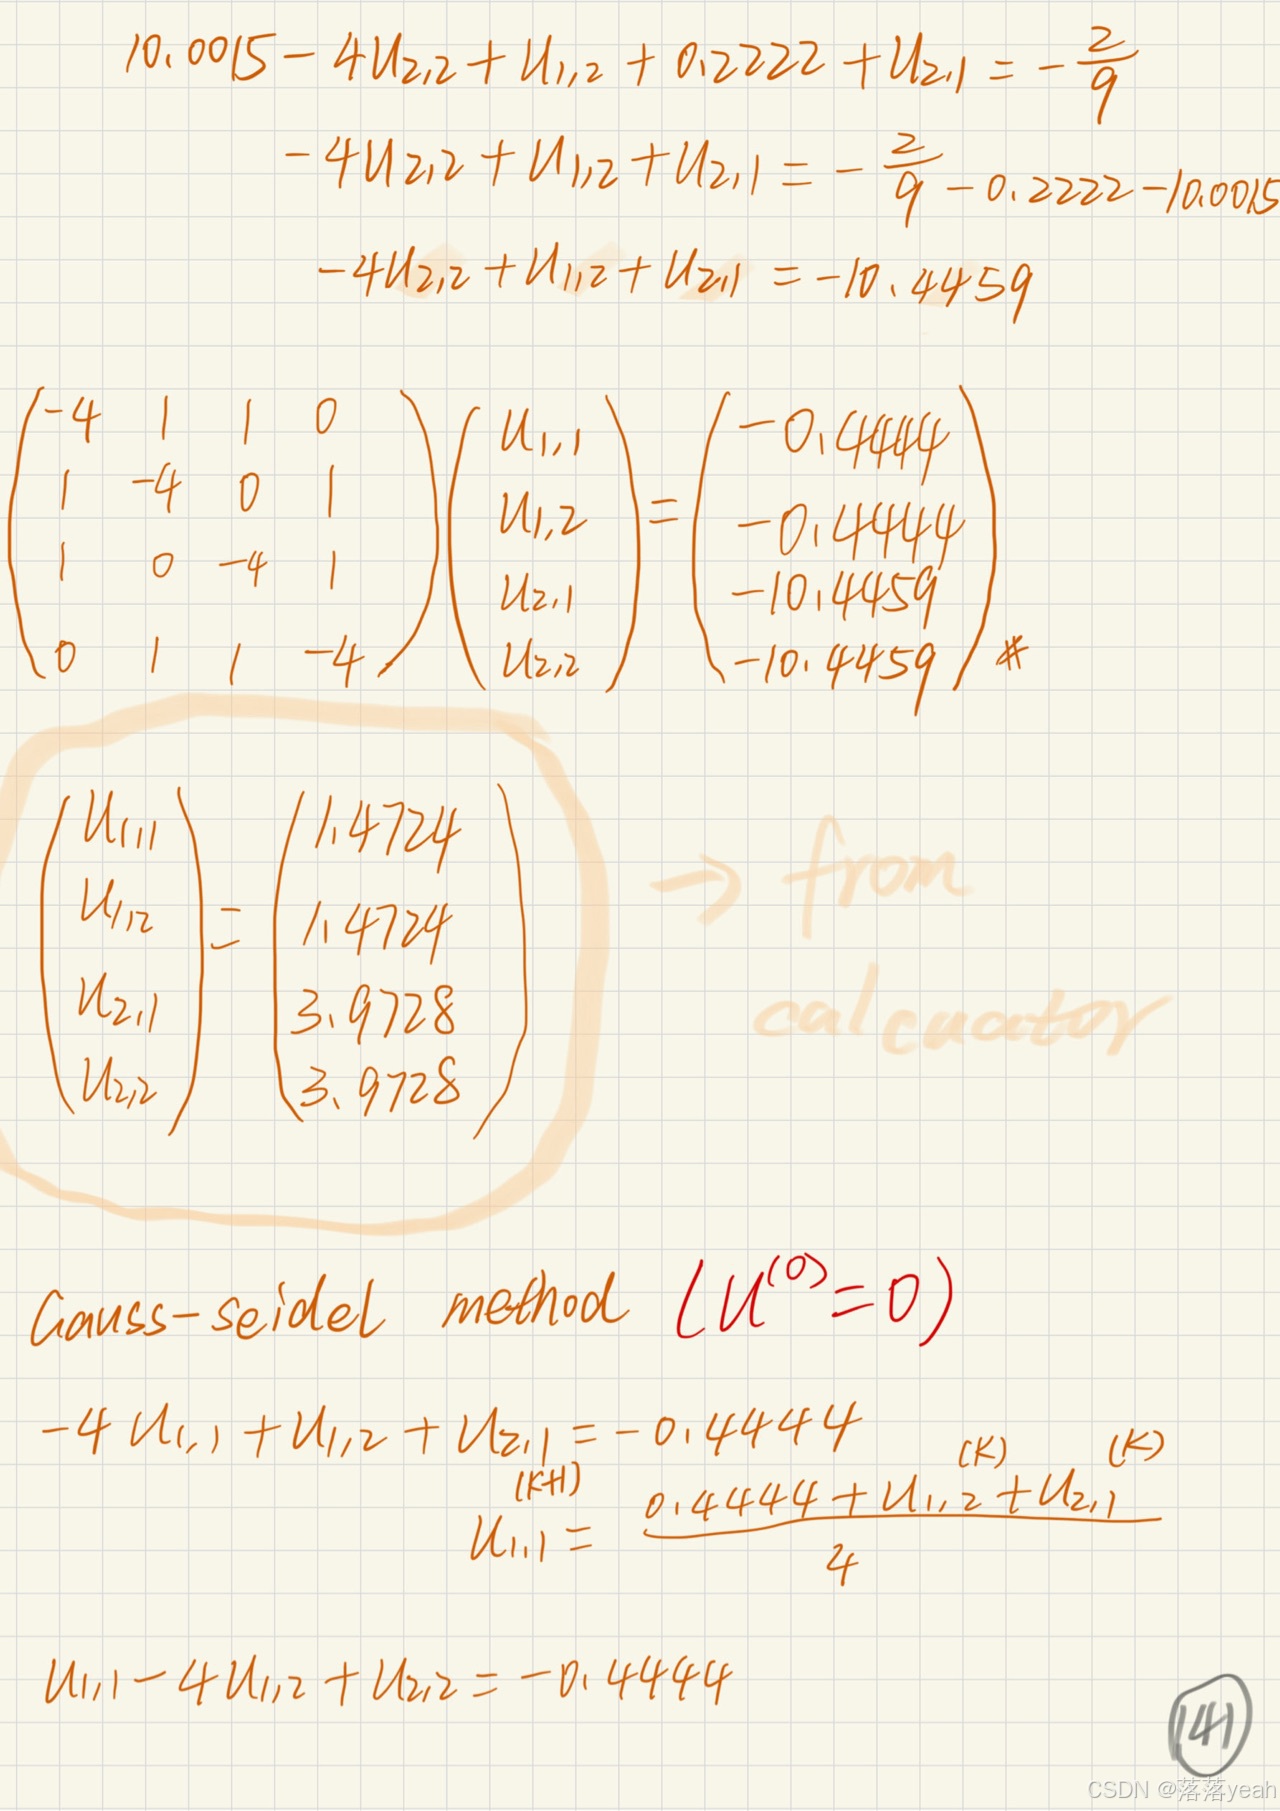 10.0015 - 4u₂,₂ + u₁,₂ + 0.2222 + u₂,₁ = - 2/9
-4u₂,₂ + u₁,₂ + u₂,₁ = - 2/9 - 0.2222 - 10.0015
-4u₂,₂ + u₁,₂ + u₂,₁ = -10.4459
-4 1 1 0 u₁,₁ -0.4444
1 -4 0 1 u₁,₂ = -0.4444
1 0 -4 1 u₂,₁ -10.4459
0 1 1 -4 u₂,₂ -10.4459 *
u₁,₁ 1.4724
u₁,₂ = 1.4724
u₂,₁ 3.9728
u₂,₂ 3.9728
→ from
calcuator
Gauss-seidel method (u⁽⁰⁾ = 0)
-4u₁,₁ + u₁,₂ + u₂,₁ = -0.4444
u₁,₁⁽ᴷ⁺¹⁾ = (0.4444 + u₁,₂⁽ᴷ⁾ + u₂,₁⁽ᴷ⁾) / 4
u₁,₁ - 4u₁,₂ + u₂,₂ = -0.4444
141
CSDN @落落yeah